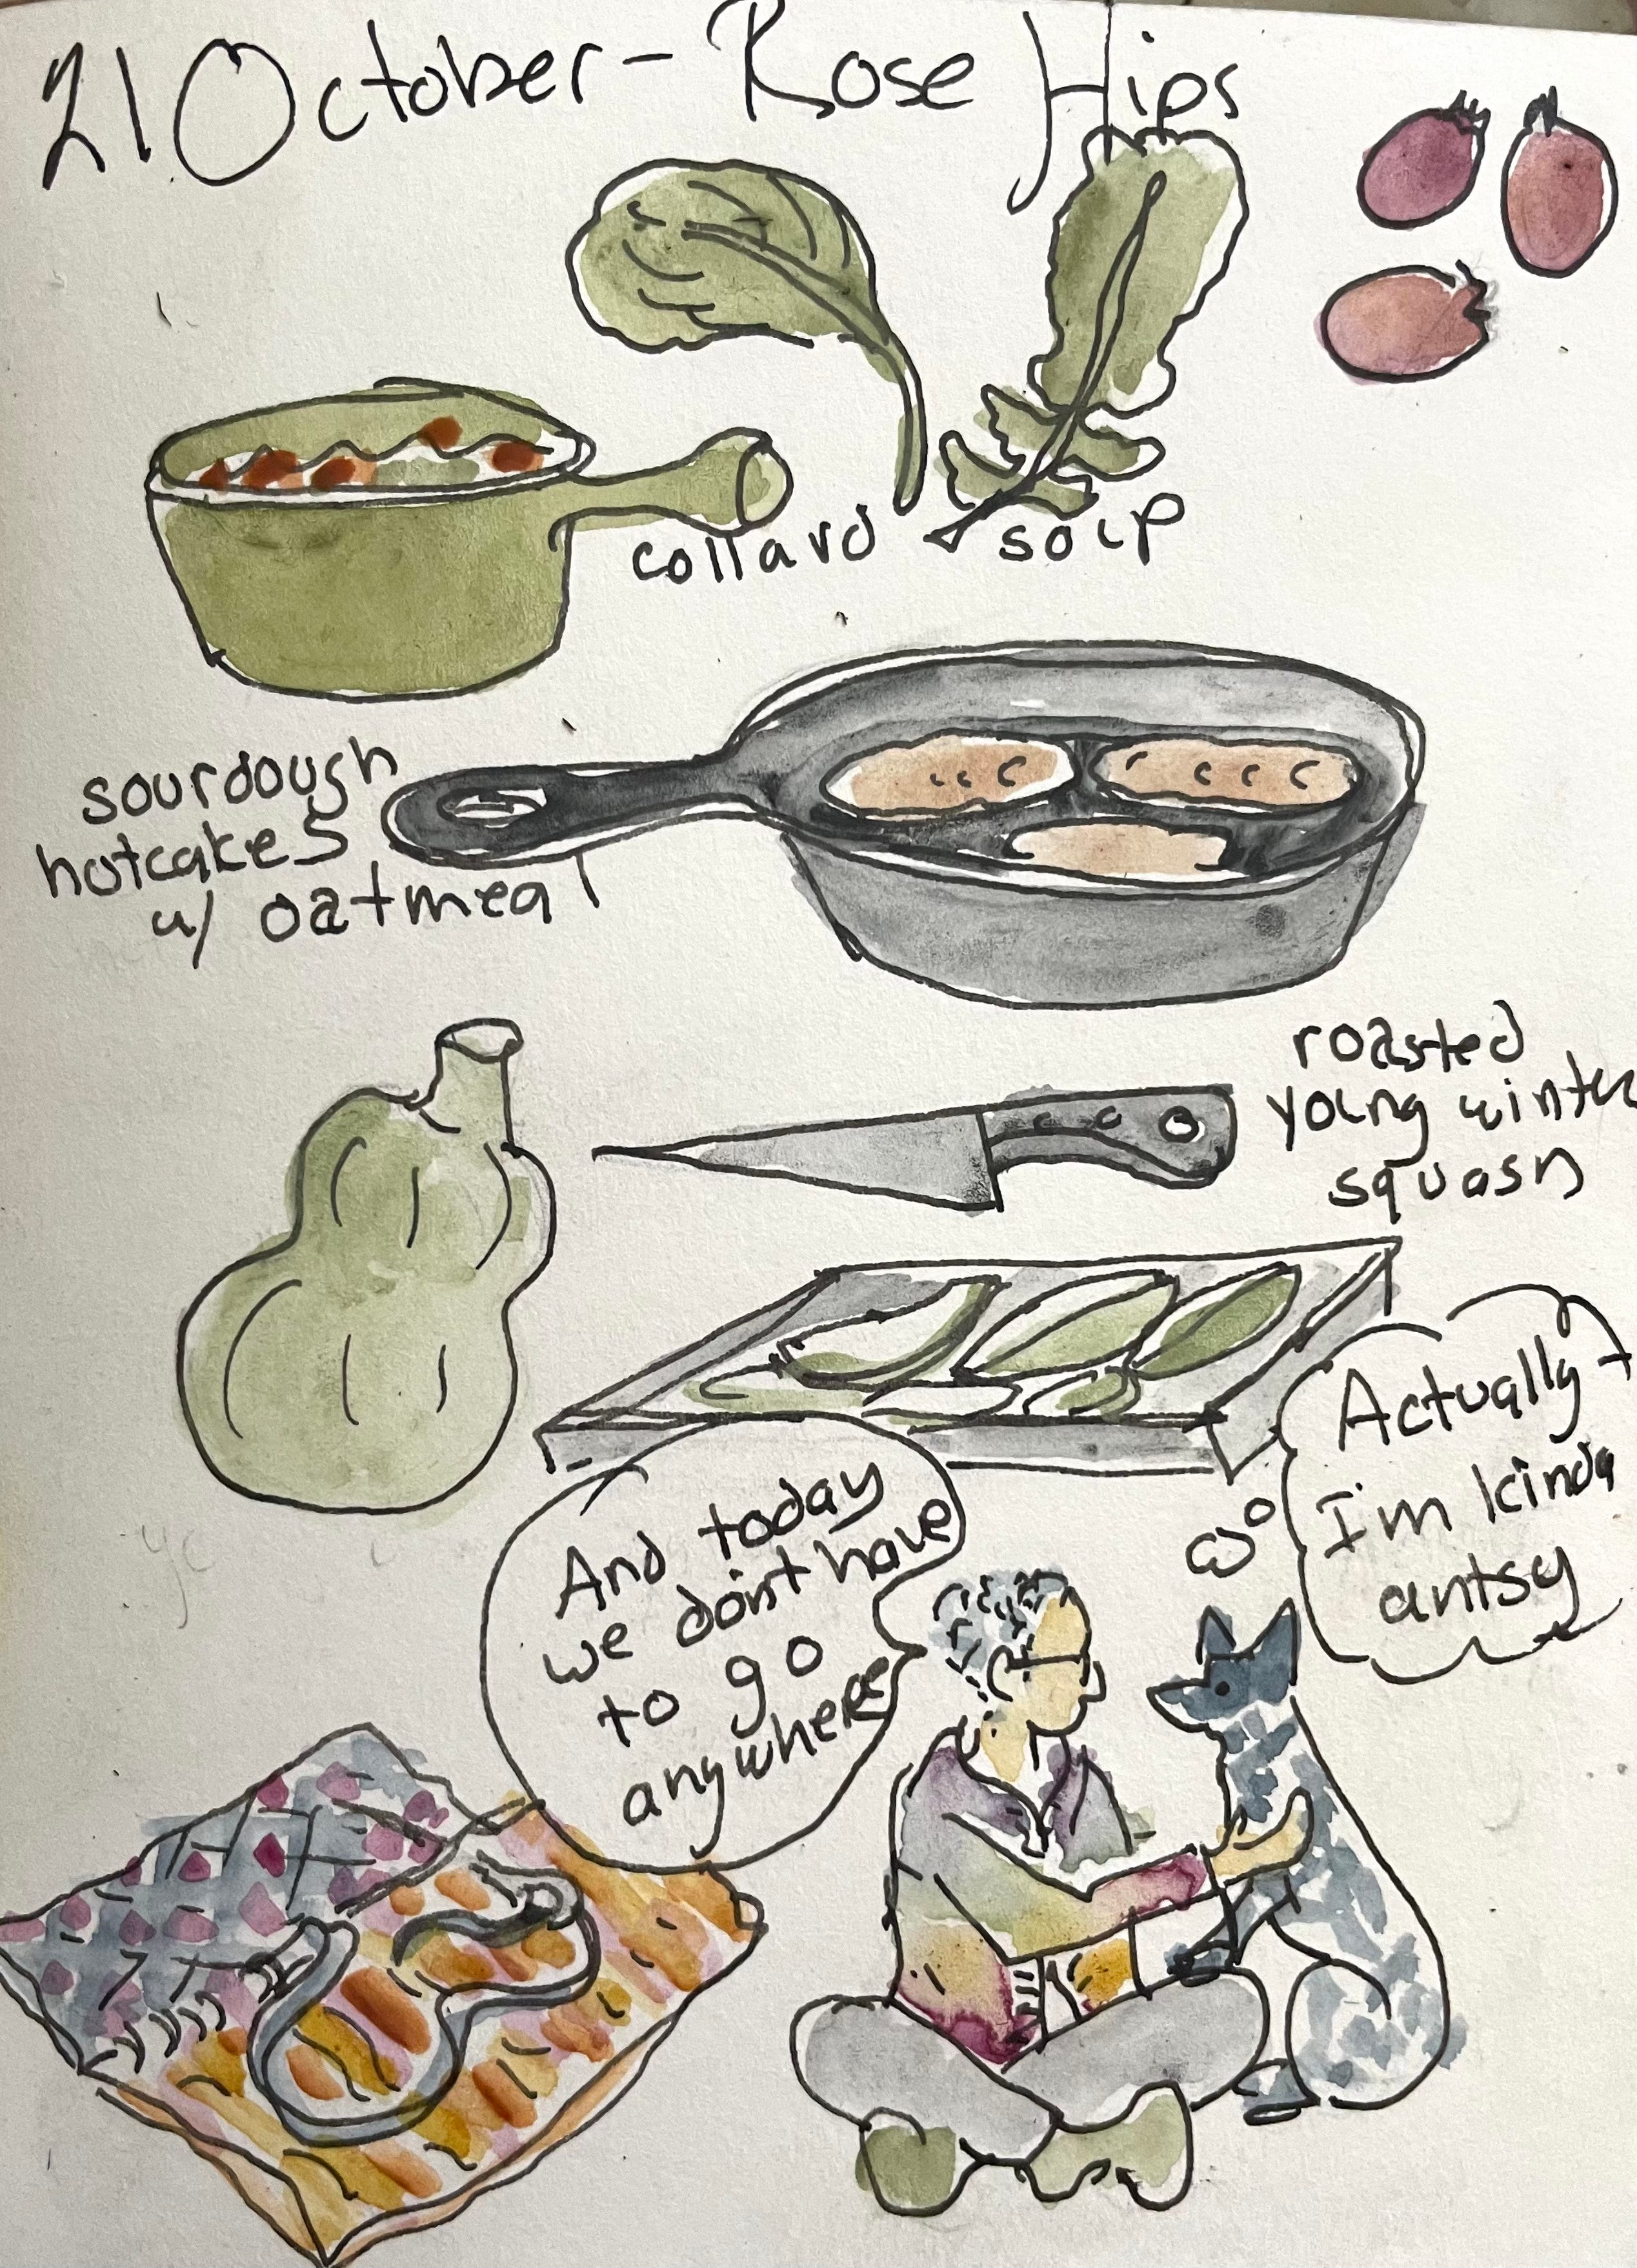 21 October - Rose Hips
collard soup
sourdough
hotcakes
w/ oatmeal
roasted
young winter
squash
And today
we don't have
to go
anywhere
Actually
I'm kinda
antsy